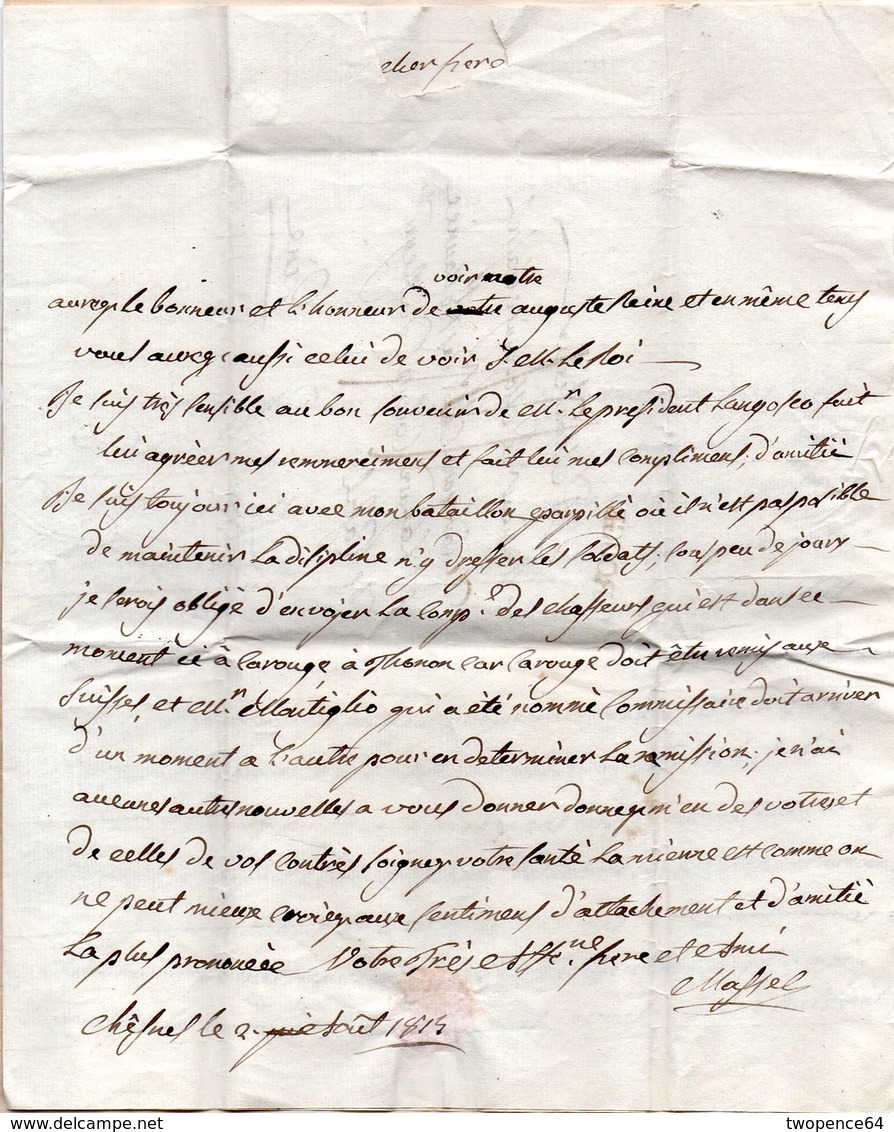 cher frere
voir notre
aurez le bonneur et l'honneur de votre auguste Reine et en même tems
vous avez aussi celui de voir S. M. Le Roi
Je suis très sensible au bon souvenir de Mr. Le president Langosco fait
lui agréer mes remmercimens et fait lui mes complimens, d'amitié
Je suis toujour ici avec mon bataillon eparpillé où il n'est pas possible
de maintenir La disipline n'y dresser les soldats, sous peu de jours
je serois obligé d'envojer La comp.e des chasseurs qui est dans ce
moment ici à Carouge à Thonon car Carouge doit être remis aux
Suisses, et Mr. Montiglio qui a été nommé Commissaire doit arriver
d'un moment a L'autre pour en determiner La remission, je n'ai
aucunes autres nouvelles a vous donner donnez m'en des votres et
de celles de vos contrés soignez votre santé La mienne est comme on
ne peut mieux croiez aux sentimens d'attachement et d'amitié
La plus prononcée Votre Très Affne. frere et Ami
Maffei
Chênes le 2. Août 1815
delcampe.net
twopence64